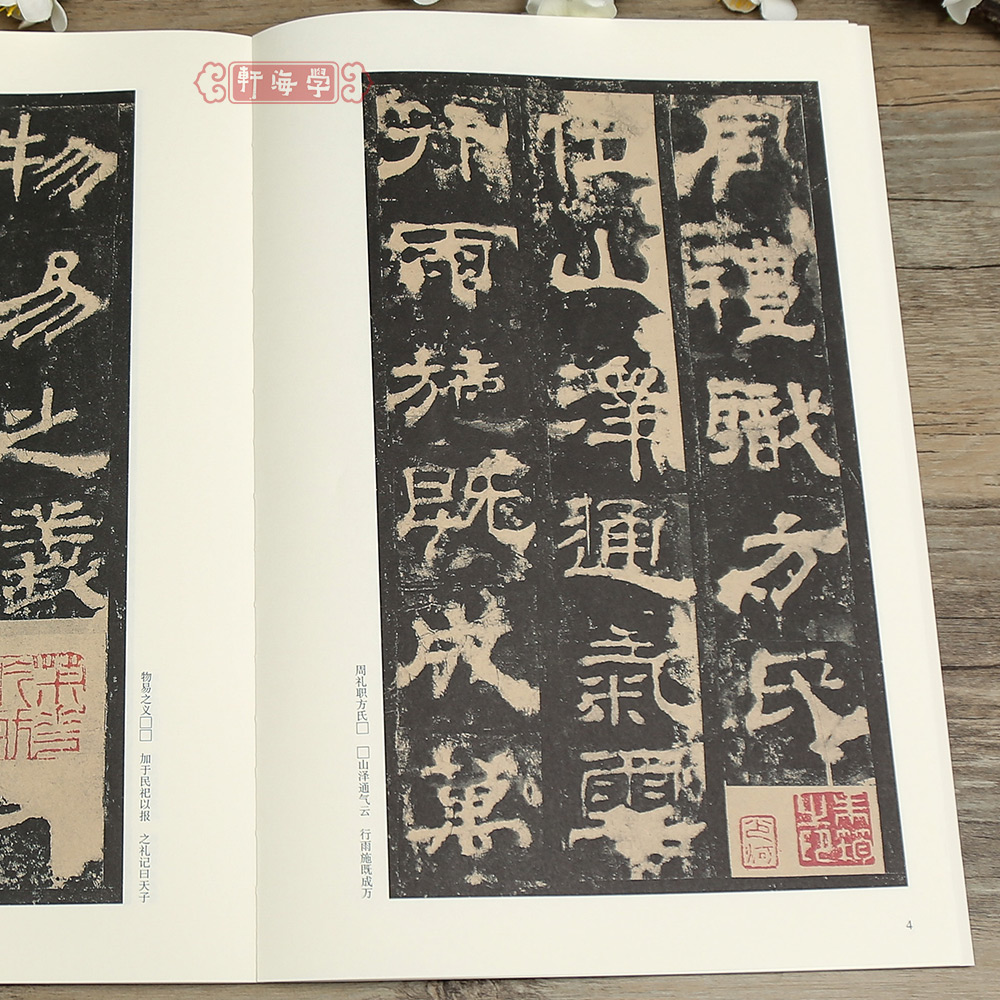 學海軒
周禮職方氏
位山澤通氣雲
行雨施既成萬
周礼职方氏□ □山泽通气云 行雨施既成万
4
物易之義
物易之义□□ 加于民祀以报 之礼记曰天子